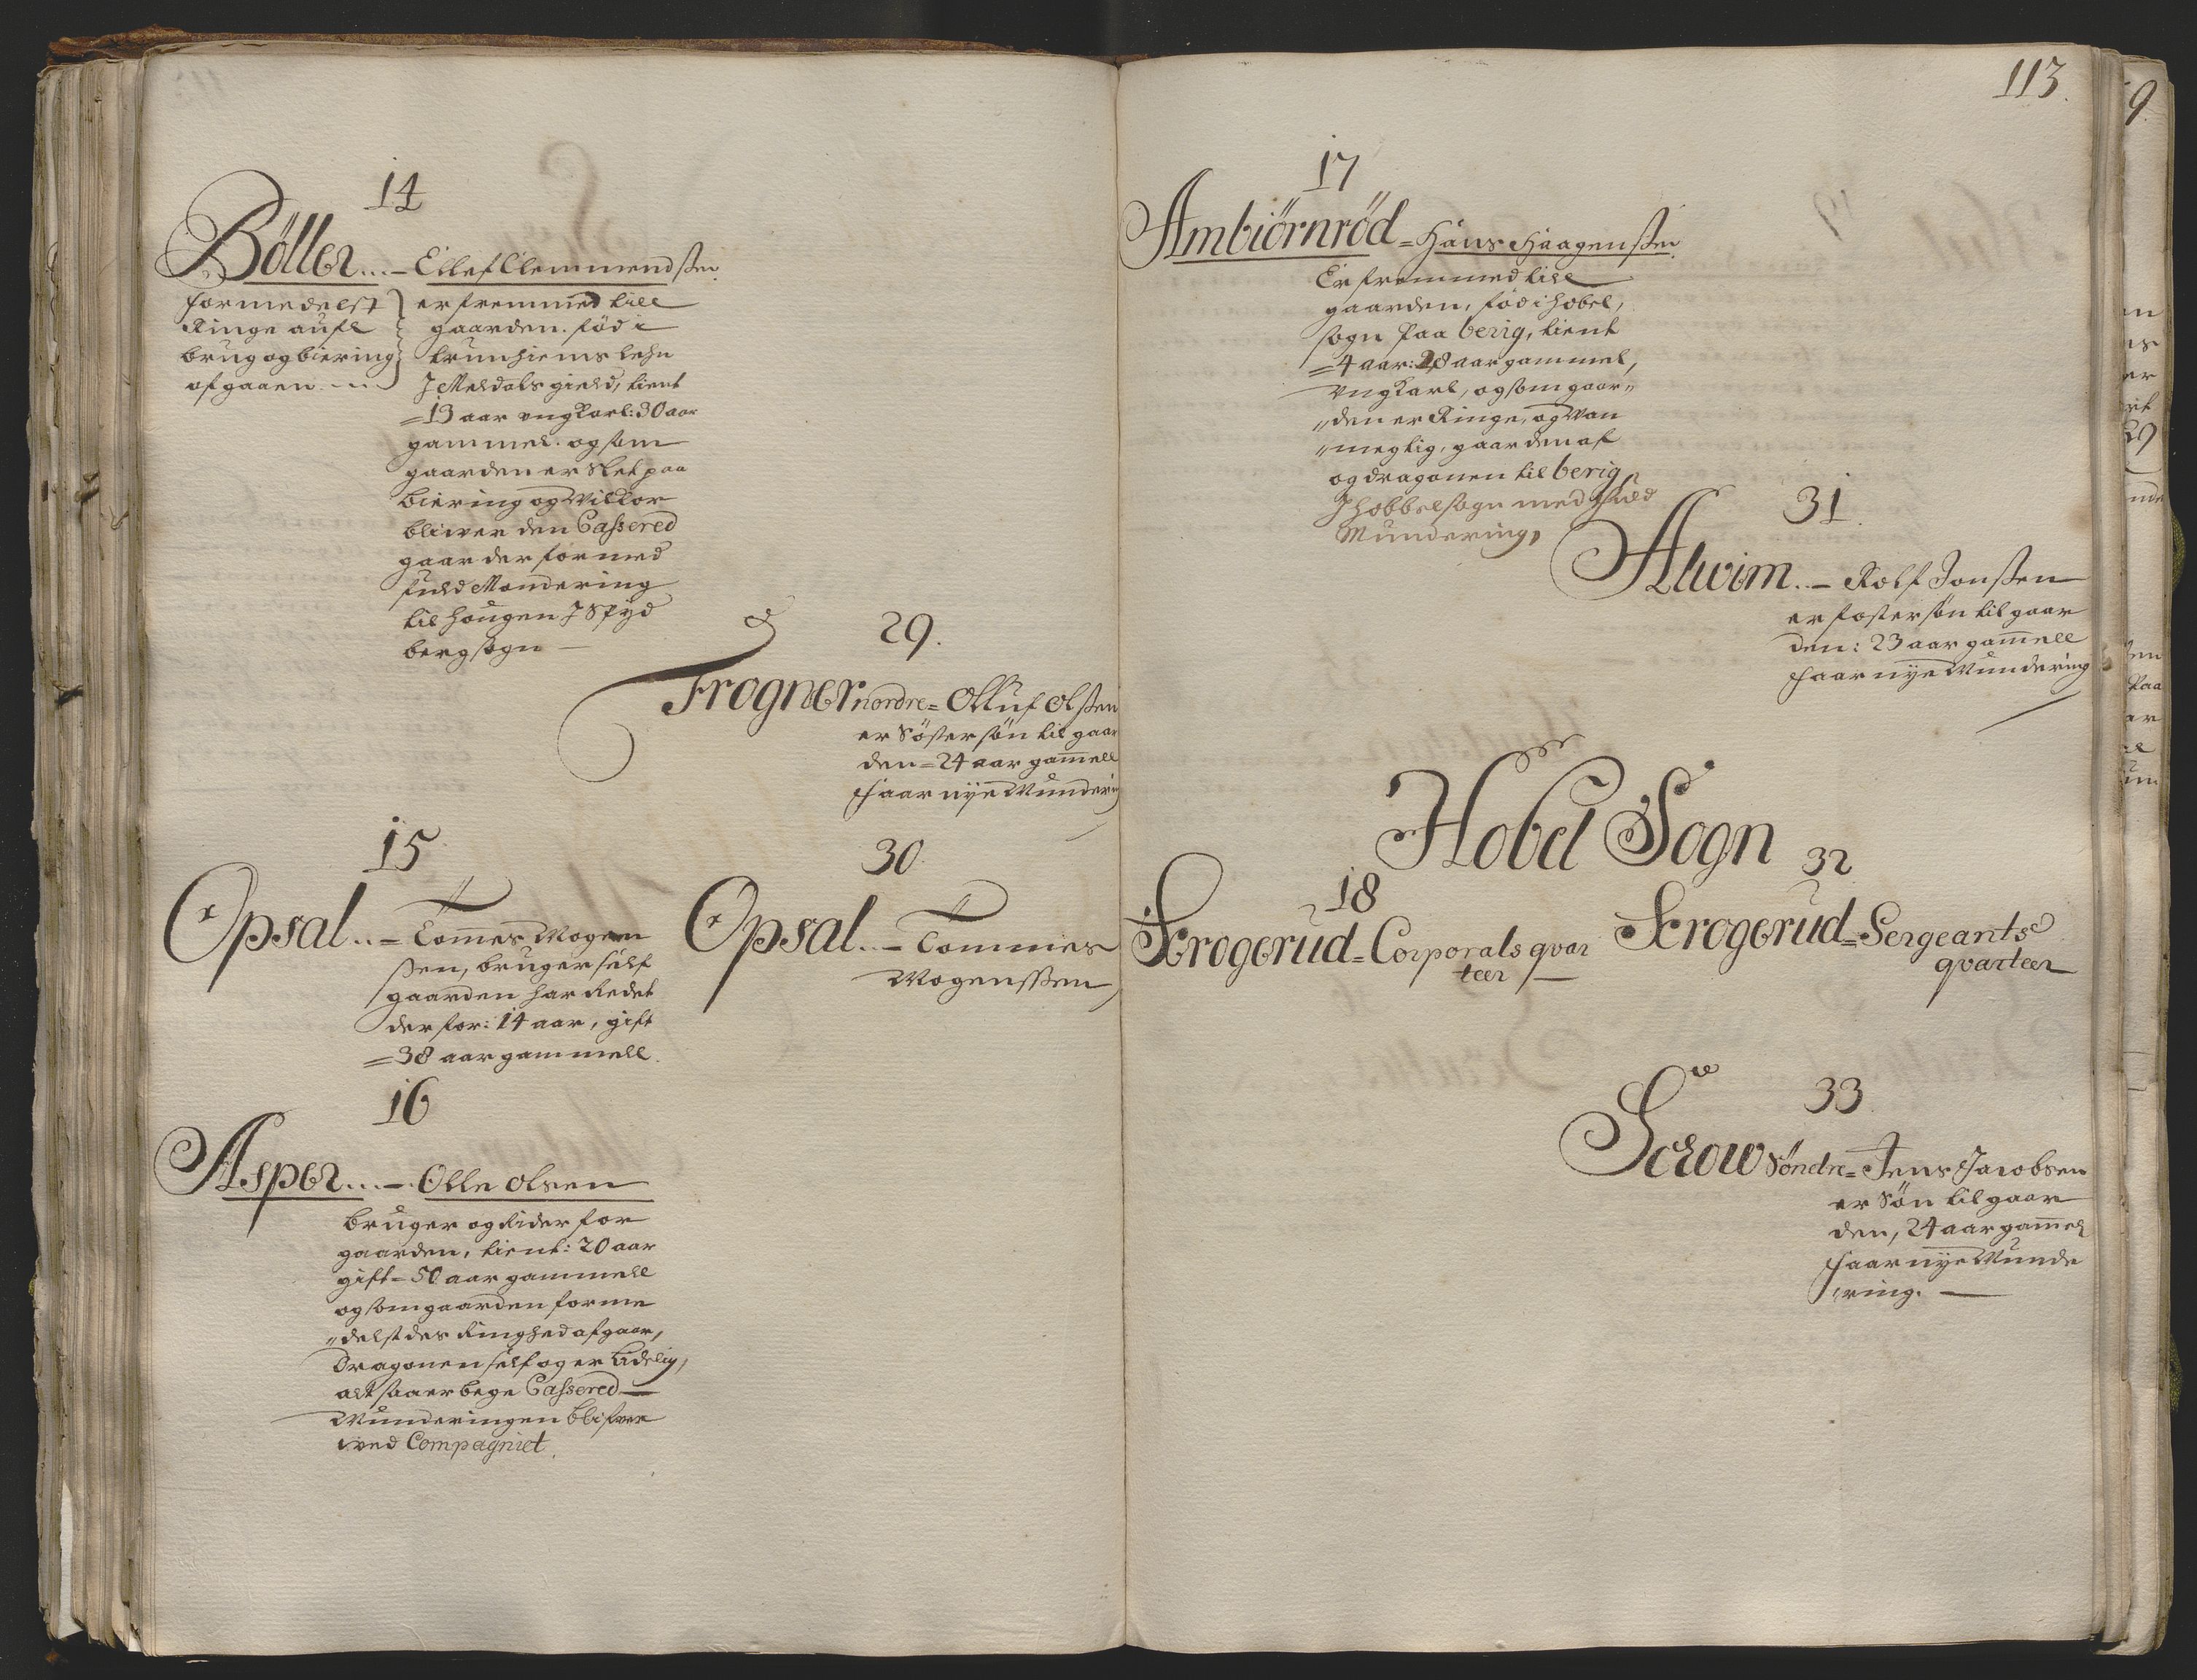 14
Böller...- Ellef Clemmendsen
formedelst
Ringe aufl
brug og biering
afgaaen
er fremmed till
gaarden. föd i
trunhiems lehn
J Meldals gield, tient
=13 aar ung karl: 30 aar
gammel. og som
gaarden er slet paa
biering og Vilkor
bliwer den Cassered
gaar der for med
fuld Mondering
til Hougen J Spyd
berg sogn
29.
Frogner nordre= Olluf Olssen
er Söster sön til gaar
den= 24 aar gamell
faar nye Mundering
15
Opsal..- Tomes Mogen
sen, bruger self
gaarden har Redet
der for: 14 aar, gift
=38 aar gammell.
30.
Opsal..- Tommes
Mogenssen
16
Asper...- Olle Olsen
bruger og Rider for
gaarden, tient: 20 aar
gift= 50 aar gammell
og som gaarden forme
"delst des Ringhed afgaar,
Dragonen self og er lidelig,
alt saa er bege Cassered
Munderingen blifwer
wed Compagniet.
113.
17
Ambiörnröd= Hans Haagenssen
Er fremmed till
gaarden, föd i Hobel,
sogn paa berig, tient
=4 aar: 28 aar gammel,
ung Karl, og som gaar"
"den er Ringe, og Van
"megtig, gaar den af
og dragonen til berig
J Hobbel sogn med fuld
Mundering,
31.
Alwim..- Rolf Jonssen
er foster sön til gaar
den: 23 aar gamell
faar nye Mundering
Hobel Sogn
18
Krogerud= Corporals qvar
teer
32
Krogerud= Sergeants
qvarteer
33.
Screow Söndre= Jens Jacobsen
er Sön til gaar
den, 24 aar gamel
faar nye Munde
"ring.